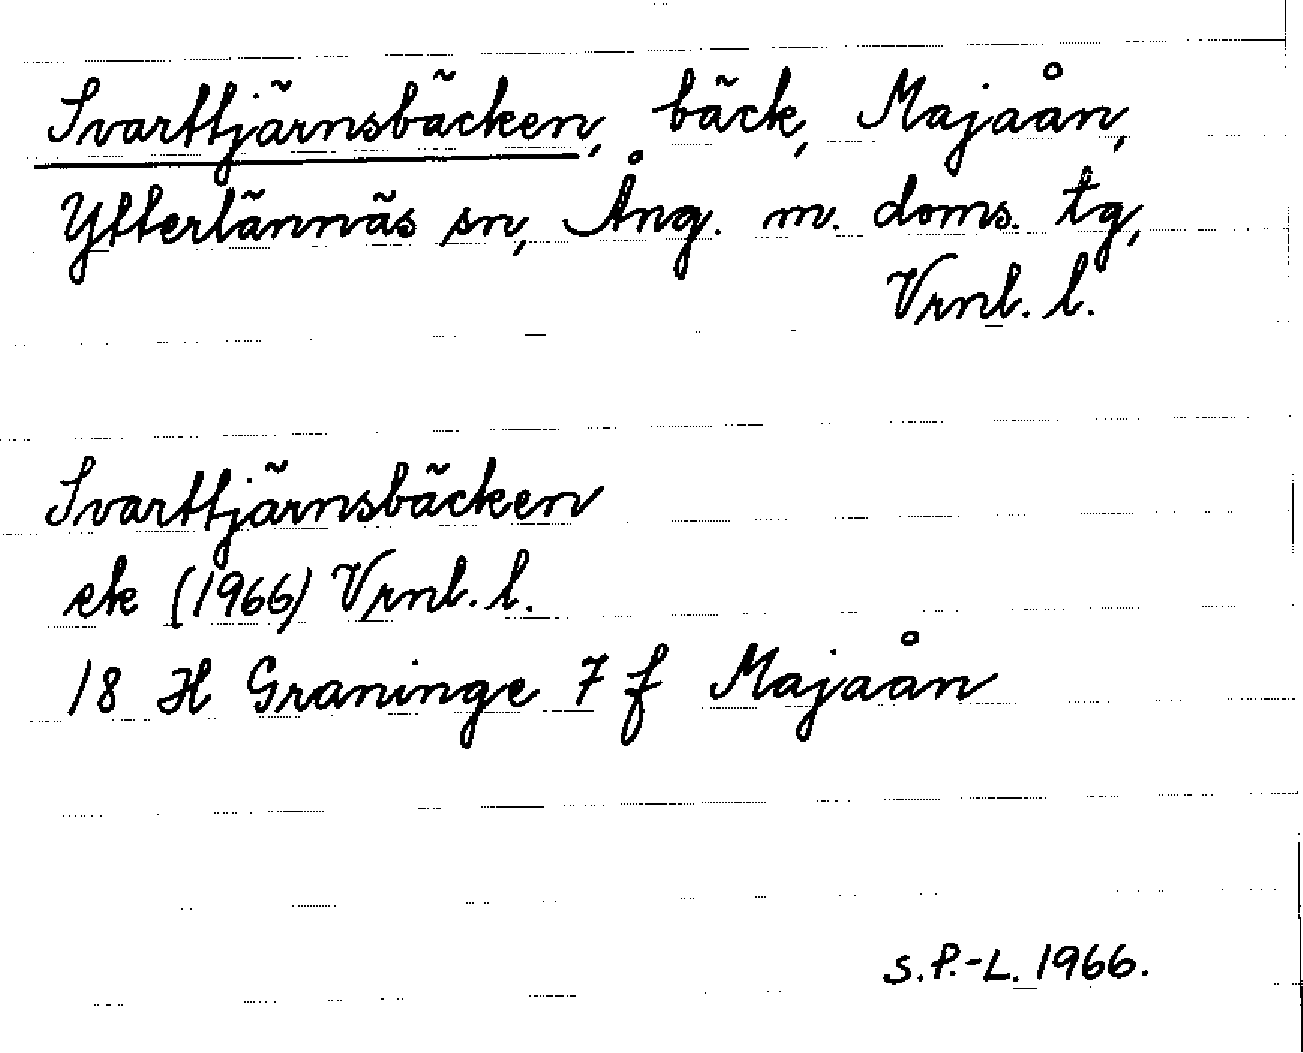 Svarttjärnsbäcken, bäck, Majaån,
Ytterlännäs sn, Ång. m. doms. tg,
Vrnl. l.
Svarttjärnsbäcken
ek (1966) Vrnl. l.
18 H Graninge 7 f Majaån
S.P.-L. 1966.